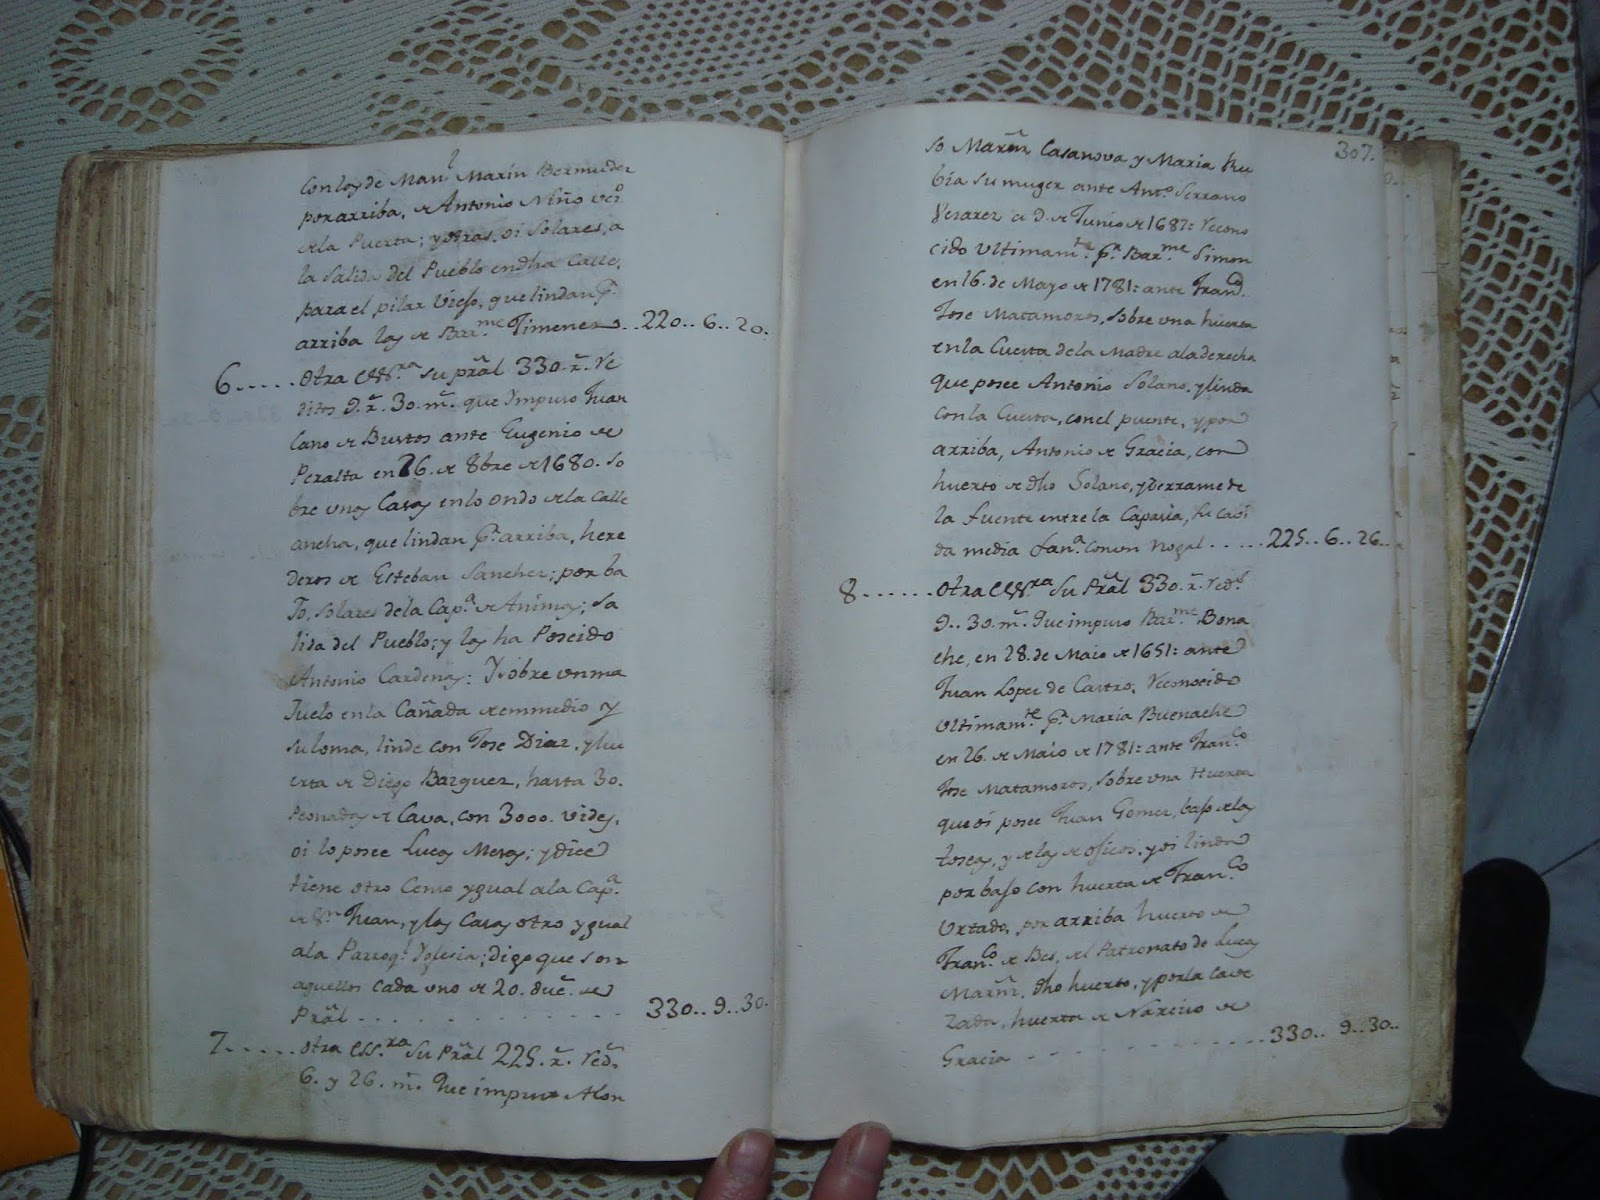 con los de Man.l Marin Bermudez
por arriba, de Antonio Niño veo
de la Puerta; y otras, oi Solares, a
la salida del Pueblo en dha Calle,
para el pilar Viejo, que lindan p.r
arriba las de Bar.me Ximenez .. 220.. 6.. 20.
6..... Otra Ess.ra su pral 330. r. Re
ditos 9. r. 30. m. que Ympuso Juan
Cano de Bustos ante Eugenio de
Peralta en 26. de 8bre de 1680. so
bre unas Casas en lo ondo de la Calle
ancha, que lindan p.r arriba, here
deros de Esteban Sanchez; por ba
Jo, Solares de la Cap.a de Animas; sa
lida del Pueblo; y las ha Poseido
Antonio Cardenas: Y sobre un ma
Juelo en la Cañada de enmedio y
su loma, linde con Jose Diaz, y hu
erta de Diego Bazquez, hasta 30.
Peonadas de Cava, con 3000. vides,
oi lo posee Lucas Mesas; y dice
tiene otro Censo ygual a la Cap.a
de S.n Juan, y las Casas otro ygual
a la Parroq.l Yglesia; digo que son
aquellos cada uno de 20. duc.s de
Pral . . . . . . . . . . 330.. 9.. 30.
7..... Otra Ess.ra Su Pral 225. r. red.s
6. y 26. m. Que impuso Alon
307.
so Marin Casanova y Maria Ru
bia su muger ante Ant.o Serrano
Veraxez a 9. de Junio de 1687: Recono
cido Ultimam.te p.r Bar.me Simon
en 16. de Mayo de 1781: ante Fran.co
Jose Matamoros, sobre una huerta
en la Cuesta de la Madre a la derecha
que posee Antonio Solano, y linda
con la Cuesta, con el puente, y por
arriba, Antonio de Gracia, con
huerto de dho Solano, y Derrame de
la fuente entre la Caparia, su cabi
da media fan.a con un Nogal ..... 225.. 6.. 26..
8...... Otra Ess.ra Su Pral 330. r. red.s
9.. 30. m. Que impuso Bar.me Bona
che, en 28. de Maio de 1651: ante
Juan Lopez de Castro, Reconocido
Ultimam.te p.r Maria Buenache
en 26. de Maio de 1781: ante Fran.co
Jose Matamoros, sobre una Huerta
que oi posee Juan Gomez, bajo de las
toscas, y de las de osicos, y oi linda
por bajo con huerta de Fran.co
Urtado, por arriba huerto de
Fran.co de Bes, del Patronato de Lucas
Marin, dho huerto, y por la Cave
Zada, huerta de Narciso de
Gracia . . . . . . . . . . 330.. 9.. 30..